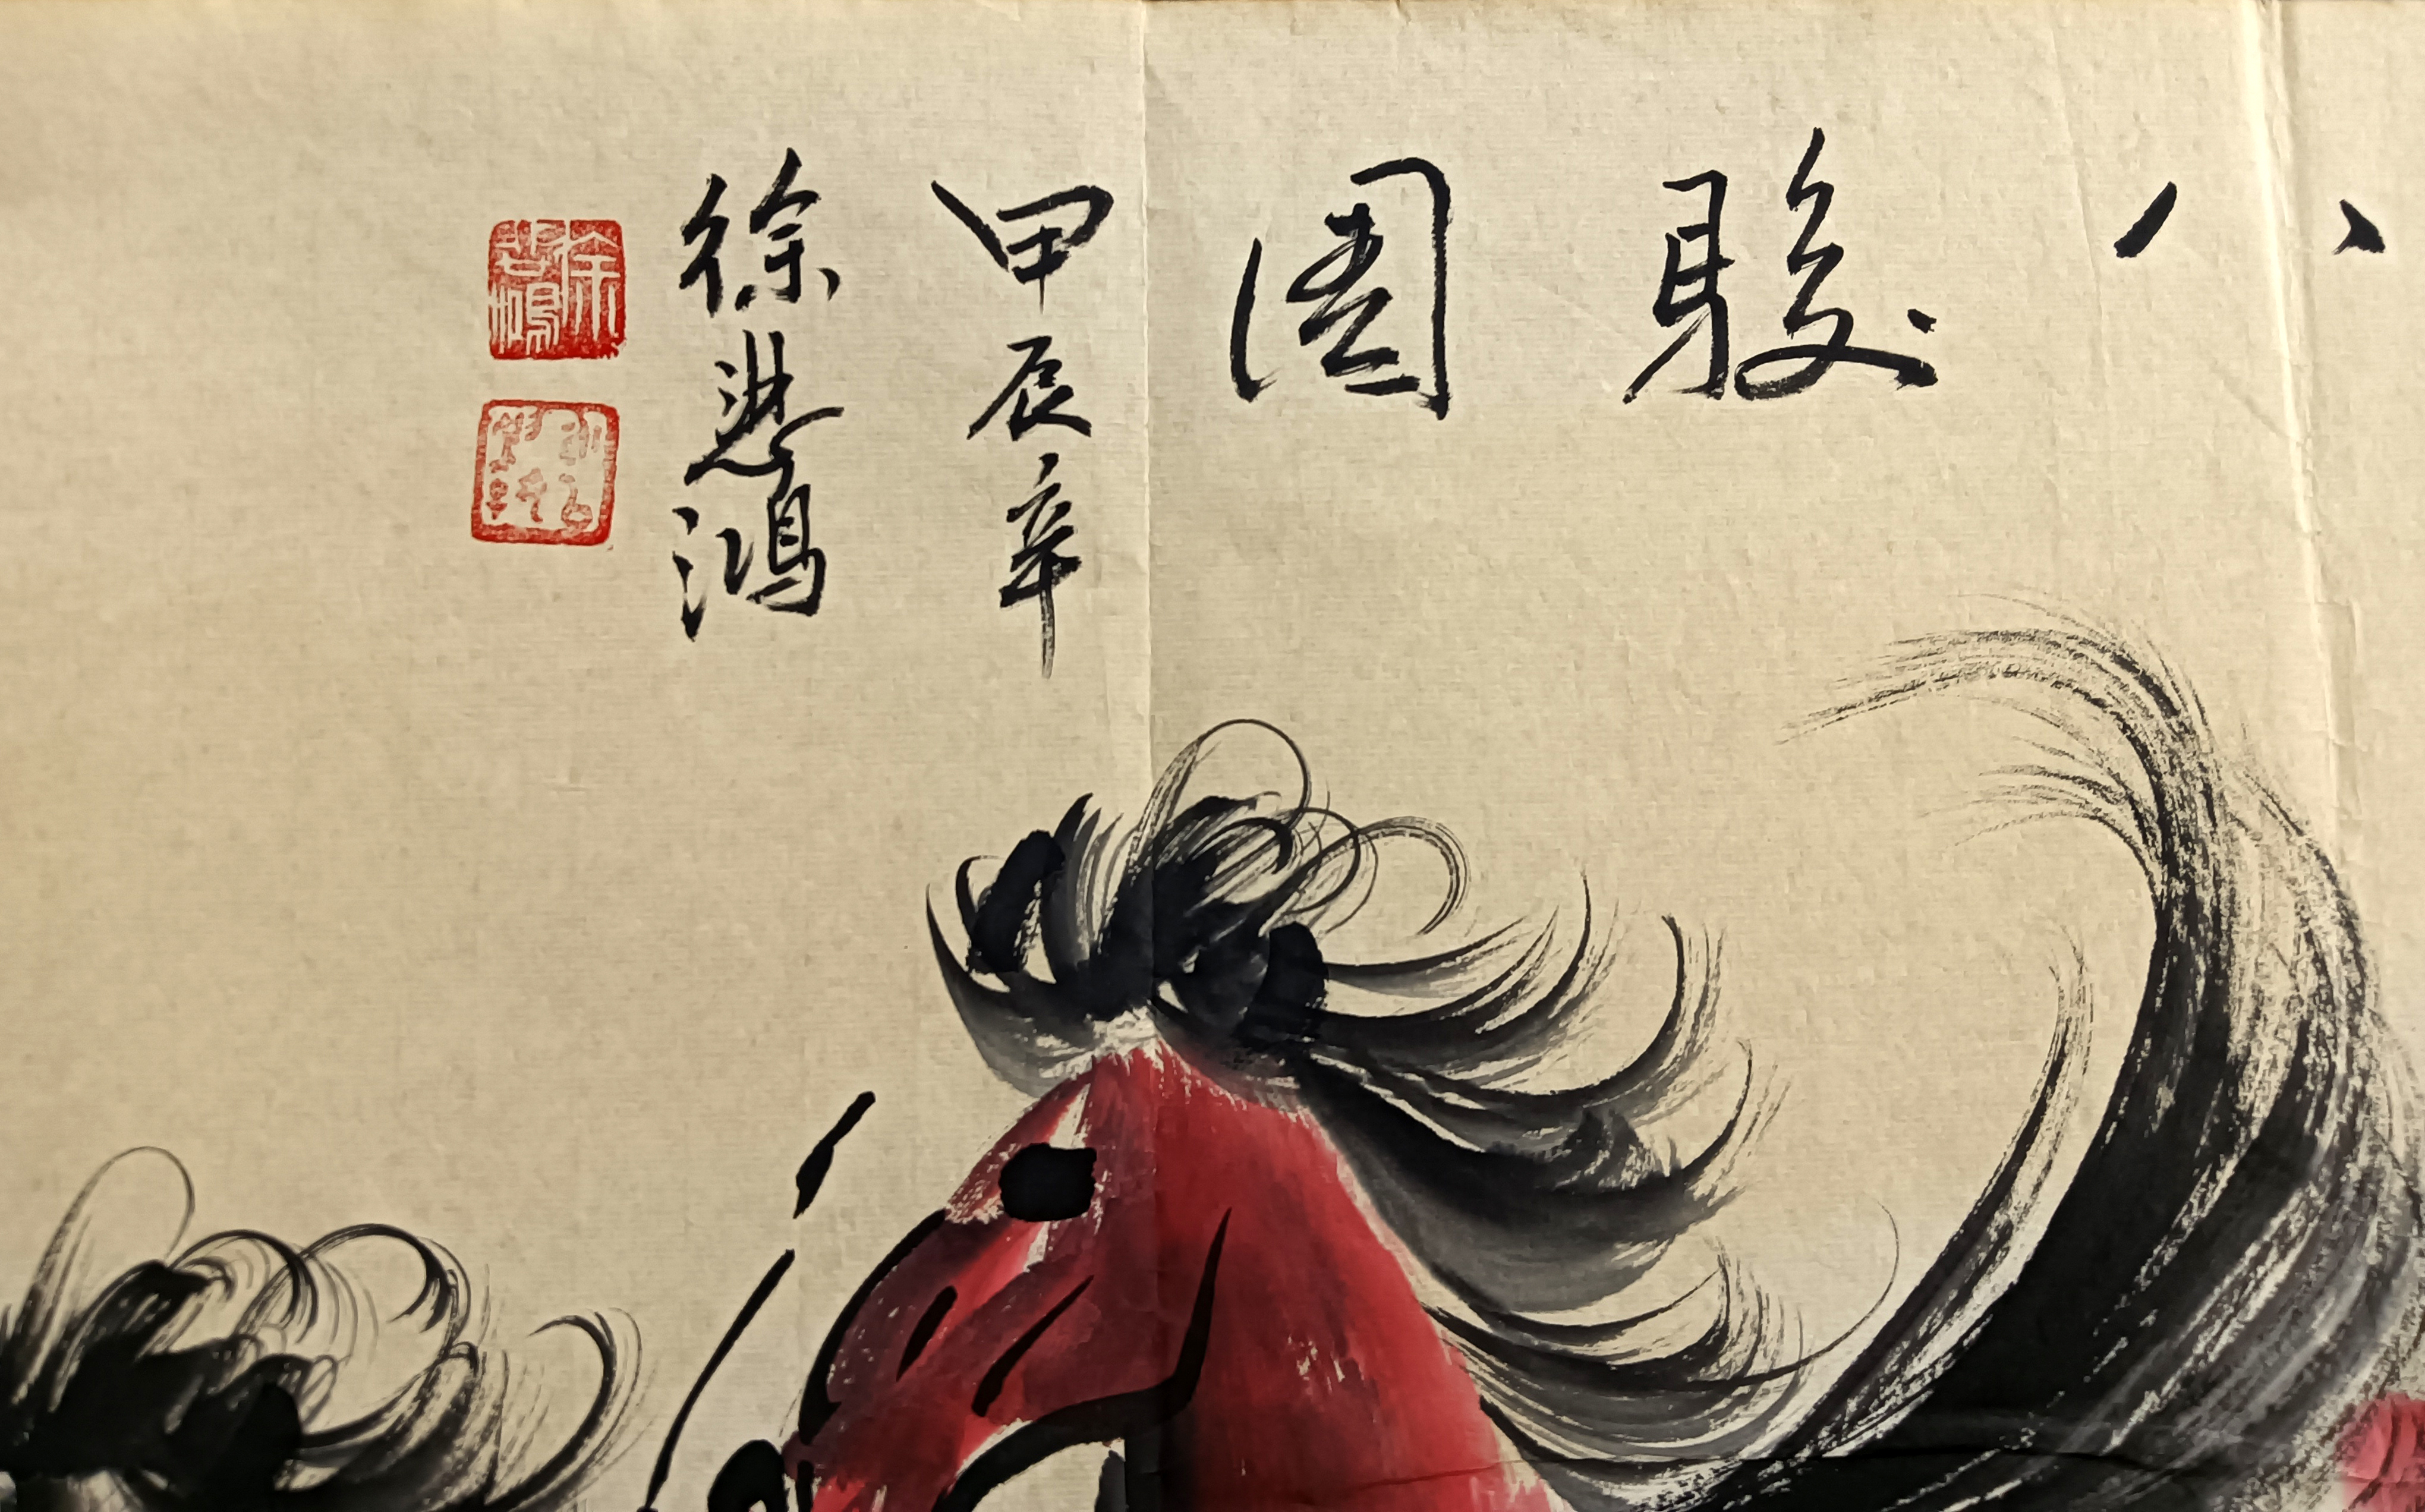 八駿圖
甲辰辛
徐悲鴻
徐悲鴻